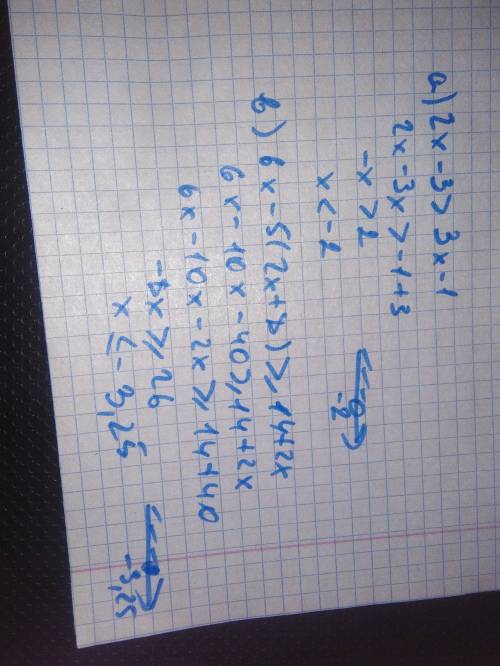 а) 2x - 3 > 3x - 1
2x - 3x > -1 + 3
-x > 2
x < -2
-2
в) 6x - 5(2x + 8) ⩾ 14 + 2x
6x - 10x - 40 ⩾ 14 + 2x
6x - 10x - 2x ⩾ 14 + 40
-8x ⩾ 26
x ⩽ -3,25
-3,25